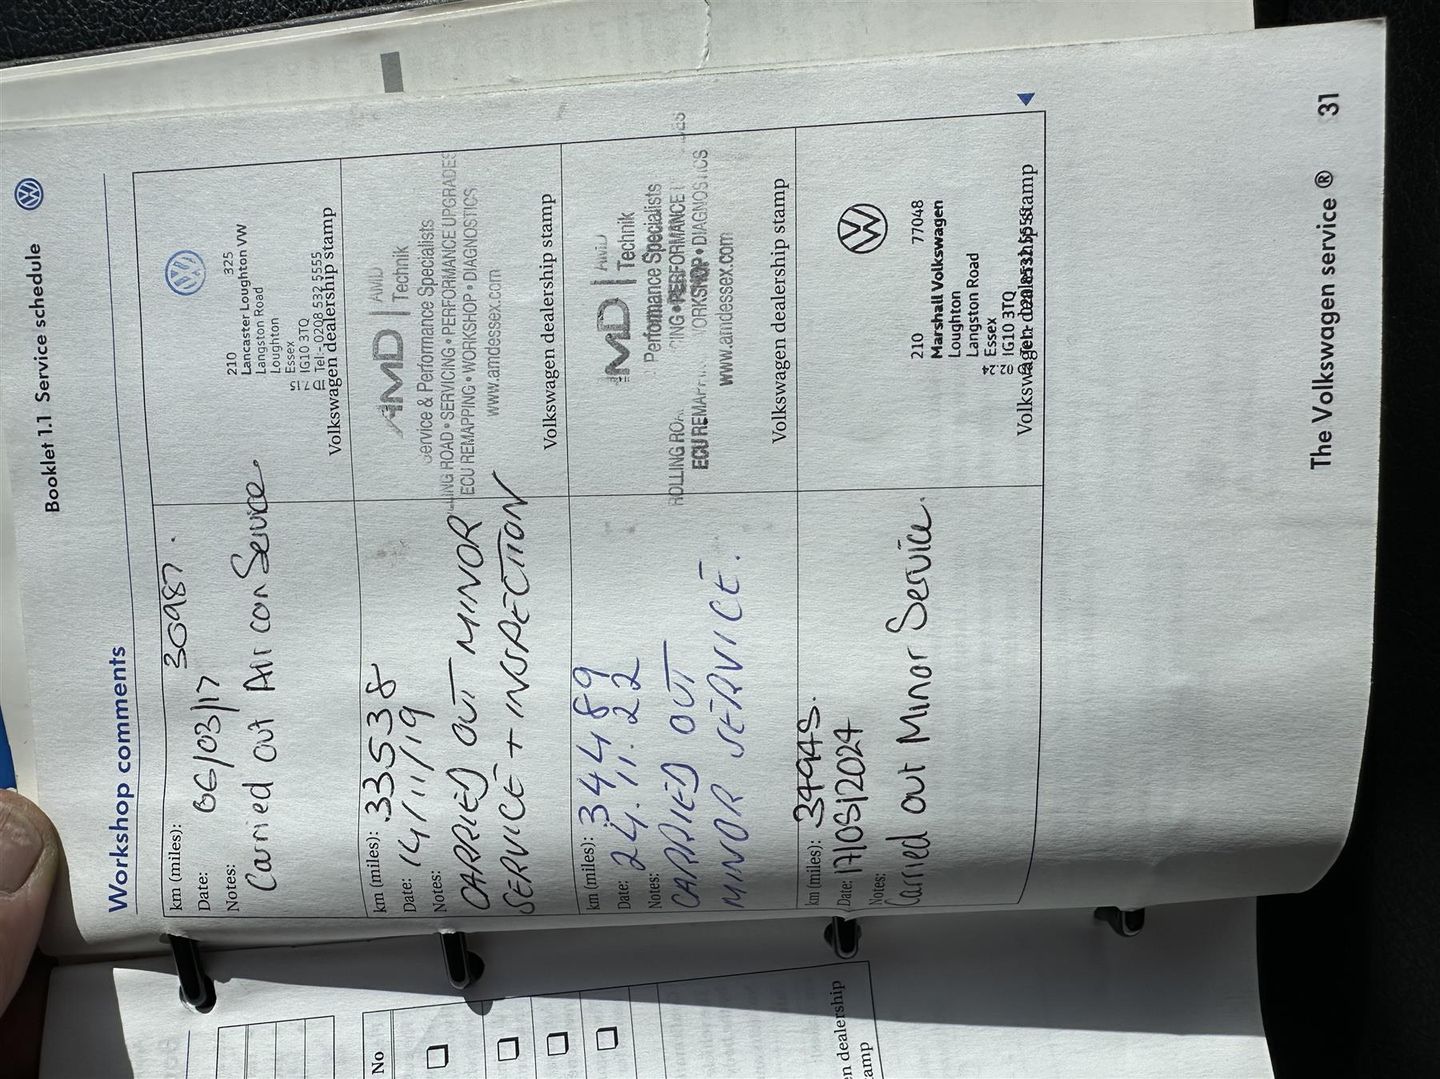 Booklet 1.1 Service schedule
Workshop comments
km (miles): 30987.
Date: 06/03/17
Notes:
Carried out Air con Service.
210 325
Lancaster Loughton VW
Langston Road
Loughton
Essex
IG10 3TQ
Tel:- 0208 532 5555
Volkswagen dealership stamp
km (miles): 33538
Date: 14/11/19
Notes:
CARRIED OUT MINOR
SERVICE + INSPECTION
AMD | AMD
Technik
Service & Performance Specialists
ROAD • SERVICING • PERFORMANCE UPGRADES
ECU REMAPPING • WORKSHOP • DIAGNOSTICS
www.amdessex.com
Volkswagen dealership stamp
km (miles): 34489
Date: 24.11.22
Notes:
CARRIED OUT
MINOR SERVICE.
MD | AMD
Technik
Performance Specialists
ROLLING PERFORMANCE
ECU WORKSHOP • DIAGNOSTICS
www.amdessex.com
Volkswagen dealership stamp
km (miles): 34945.
Date: 17/05/2024
Notes:
Carried out Minor Service.
210 77048
Marshall Volkswagen
Loughton
Langston Road
Essex
IG10 3TQ
Volkswagen dealership stamp
The Volkswagen service ® 31
No
dealership